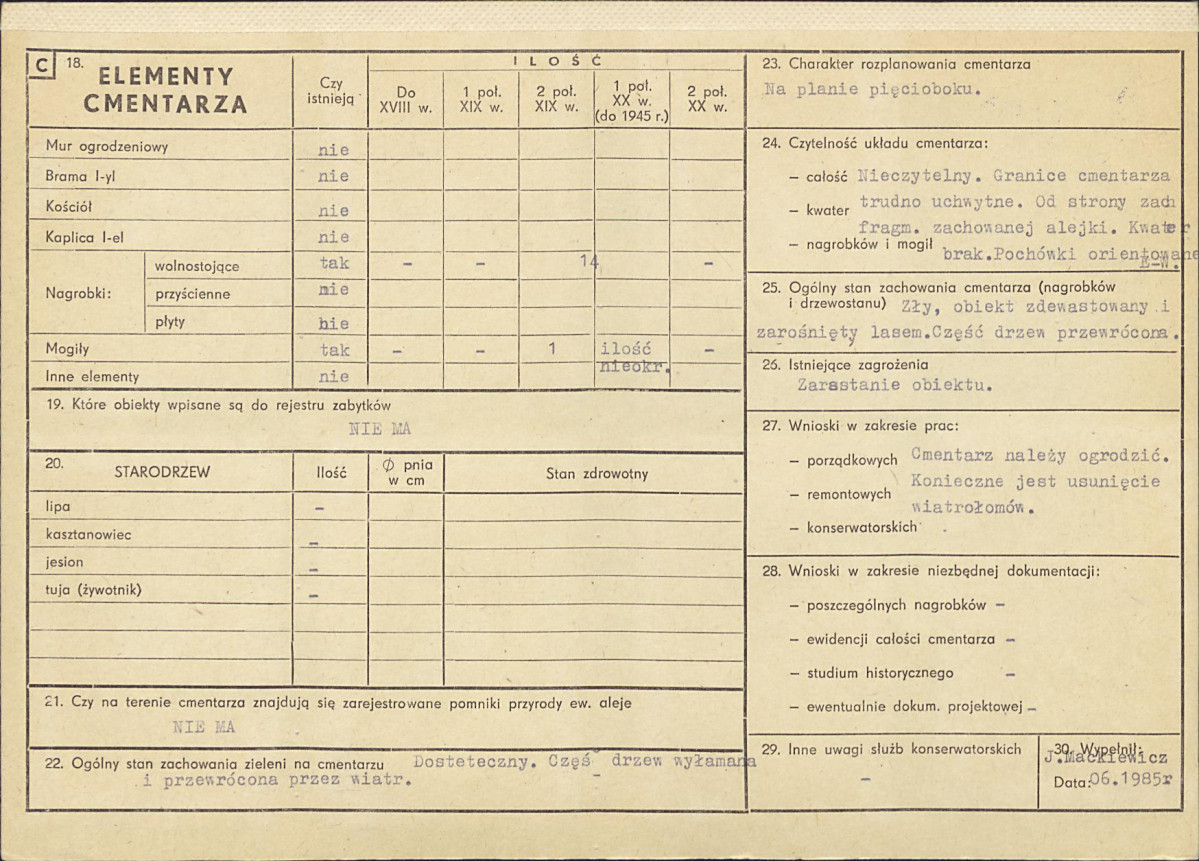 C 18. ELEMENTY CMENTARZA
Czy istnieją
ILOŚĆ
Do XVIII w.
1 poł. XIX w.
2 poł. XIX w.
1 poł. XX w. (do 1945 r.)
2 poł. XX w.
Mur ogrodzeniowy nie
Brama I-yl nie
Kościół nie
Kaplica I-el nie
Nagrobki:
wolnostojące tak – – 14 –
przyścienne nie
płyty nie
Mogiły tak – – 1 ilość nieokr. –
Inne elementy nie
19. Które obiekty wpisane są do rejestru zabytków
NIE MA
20. STARODRZEW Ilość Ø pnia w cm Stan zdrowotny
lipa –
kasztanowiec –
jesion –
tuja (żywotnik) –
21. Czy na terenie cmentarza znajdują się zarejestrowane pomniki przyrody ew. aleje
NIE MA
22. Ogólny stan zachowania zieleni na cmentarzu Dosteteczny. Częś drzew wyłamana
i przewrócona przez wiatr.
23. Charakter rozplanowania cmentarza
Na planie pięcioboku.
24. Czytelność układu cmentarza:
– całość Nieczytelny. Granice cmentarza
– kwater trudno uchwytne. Od strony zach
fragm. zachowanej alejki. Kwater
– nagrobków i mogił brak.Pochówki orientowane
E-W.
25. Ogólny stan zachowania cmentarza (nagrobków
i drzewostanu) Zły, obiekt zdewastowany i
zarośnięty lasem.Część drzew przewrócona.
26. Istniejące zagrożenia
Zarastanie obiektu.
27. Wnioski w zakresie prac:
– porządkowych Cmentarz należy ogrodzić.
Konieczne jest usunięcie
– remontowych wiatrołomów.
– konserwatorskich
28. Wnioski w zakresie niezbędnej dokumentacji:
– poszczególnych nagrobków –
– ewidencji całości cmentarza –
– studium historycznego –
– ewentualnie dokum. projektowej –
29. Inne uwagi służb konserwatorskich
–
30. Wypełnił:
J.Mackiewicz
Data:06.1985r